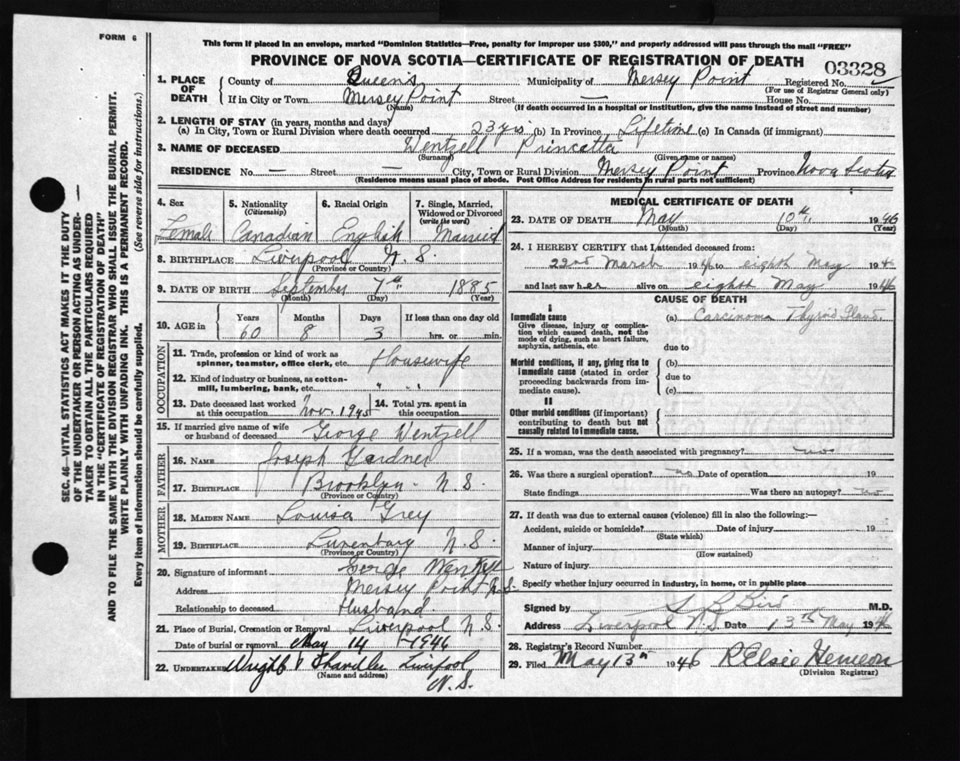 FORM 6
This form if placed in an envelope, marked "Dominion Statistics—Free, penalty for improper use $300," and properly addressed will pass through the mail "FREE"
PROVINCE OF NOVA SCOTIA—CERTIFICATE OF REGISTRATION OF DEATH
03328
1. PLACE OF DEATH
County of Queen's Municipality of Mersey Point Registered No.
(For use of Registrar General only)
If in City or Town Mersey Point Street — House No.
(Name) (If death occurred in a hospital or institution, give the name instead of street and number)
2. LENGTH OF STAY (in years, months and days)
(a) In City, Town or Rural Division where death occurred 23 yrs (b) In Province Lifetime (c) In Canada (if immigrant)
3. NAME OF DECEASED Wentzell Princetta
(Surname) (Given name or names)
RESIDENCE No. — Street — City, Town or Rural Division Mersey Point Province Nova Scotia
(Residence means usual place of abode. Post Office Address for residents in rural parts not sufficient)
4. Sex
Female
5. Nationality
(Citizenship)
Canadian
6. Racial Origin
English
7. Single, Married, Widowed or Divorced
(write the word)
Married
8. BIRTHPLACE Liverpool N. S.
(Province or Country)
9. DATE OF BIRTH September 7th 1885
(Month) (Day) (Year)
10. AGE in
Years Months Days If less than one day old
60 8 3 hrs. or min.
OCCUPATION
11. Trade, profession or kind of work as spinner, teamster, office clerk, etc. Housewife
12. Kind of industry or business, as cotton-mill, lumbering, bank, etc. " "
13. Date deceased last worked at this occupation Nov. 1945
14. Total yrs. spent in this occupation
15. If married give name of wife or husband of deceased George Wentzell
FATHER
16. NAME Joseph Gardner
17. BIRTHPLACE Brooklyn - N. S.
(Province or Country)
MOTHER
18. MAIDEN NAME Louisa Grey
19. BIRTHPLACE Lunenburg N. S.
(Province or Country)
20. Signature of informant George Wentzell
Address Mersey Point N. S.
Relationship to deceased Husband.
21. Place of Burial, Cremation or Removal Liverpool N. S.
Date of burial or removal May 14 1946
22. UNDERTAKER Wright Chandler Liverpool
(Name and address)
N. S.
MEDICAL CERTIFICATE OF DEATH
23. DATE OF DEATH May 10th 1946
(Month) (Day) (Year)
24. I HEREBY CERTIFY that I attended deceased from:
22nd March 1946 to eighth May 1946
and last saw her alive on eighth May 1946
CAUSE OF DEATH
I
Immediate cause
Give disease, injury or complication which caused death, not the mode of dying, such as heart failure, asphyxia, asthenia, etc.
(a) Carcinoma Thyroid Gland
due to
Morbid conditions, if any, giving rise to immediate cause (stated in order proceeding backwards from immediate cause).
(b)
due to
(c)
II
Other morbid conditions (if important) contributing to death but not causally related to immediate cause.
25. If a woman, was the death associated with pregnancy? no
26. Was there a surgical operation? no Date of operation 19
State findings Was there an autopsy? no
27. If death was due to external causes (violence) fill in also the following:—
Accident, suicide or homicide? Date of injury 19
(State which)
Manner of injury
(How sustained)
Nature of injury
Specify whether injury occurred in industry, in home, or in public place
Signed by L B Bird M.D.
Address Liverpool N.S. Date 13th May 1946
28. Registrar's Record Number
29. Filed May 13th 1946 R Elsie Hemeon
(Division Registrar)
SEC. 46—VITAL STATISTICS ACT MAKES IT THE DUTY
OF THE UNDERTAKER OR PERSON ACTING AS UNDER-
TAKER TO OBTAIN ALL THE PARTICULARS REQUIRED
IN THE "CERTIFICATE OF REGISTRATION OF DEATH"
AND TO FILE THE SAME WITH THE DIVISION REGISTRAR WHO SHALL ISSUE THE BURIAL PERMIT.
WRITE PLAINLY WITH UNFADING INK. THIS IS A PERMANENT RECORD.
Every item of information should be carefully supplied. (See reverse side for instructions.)